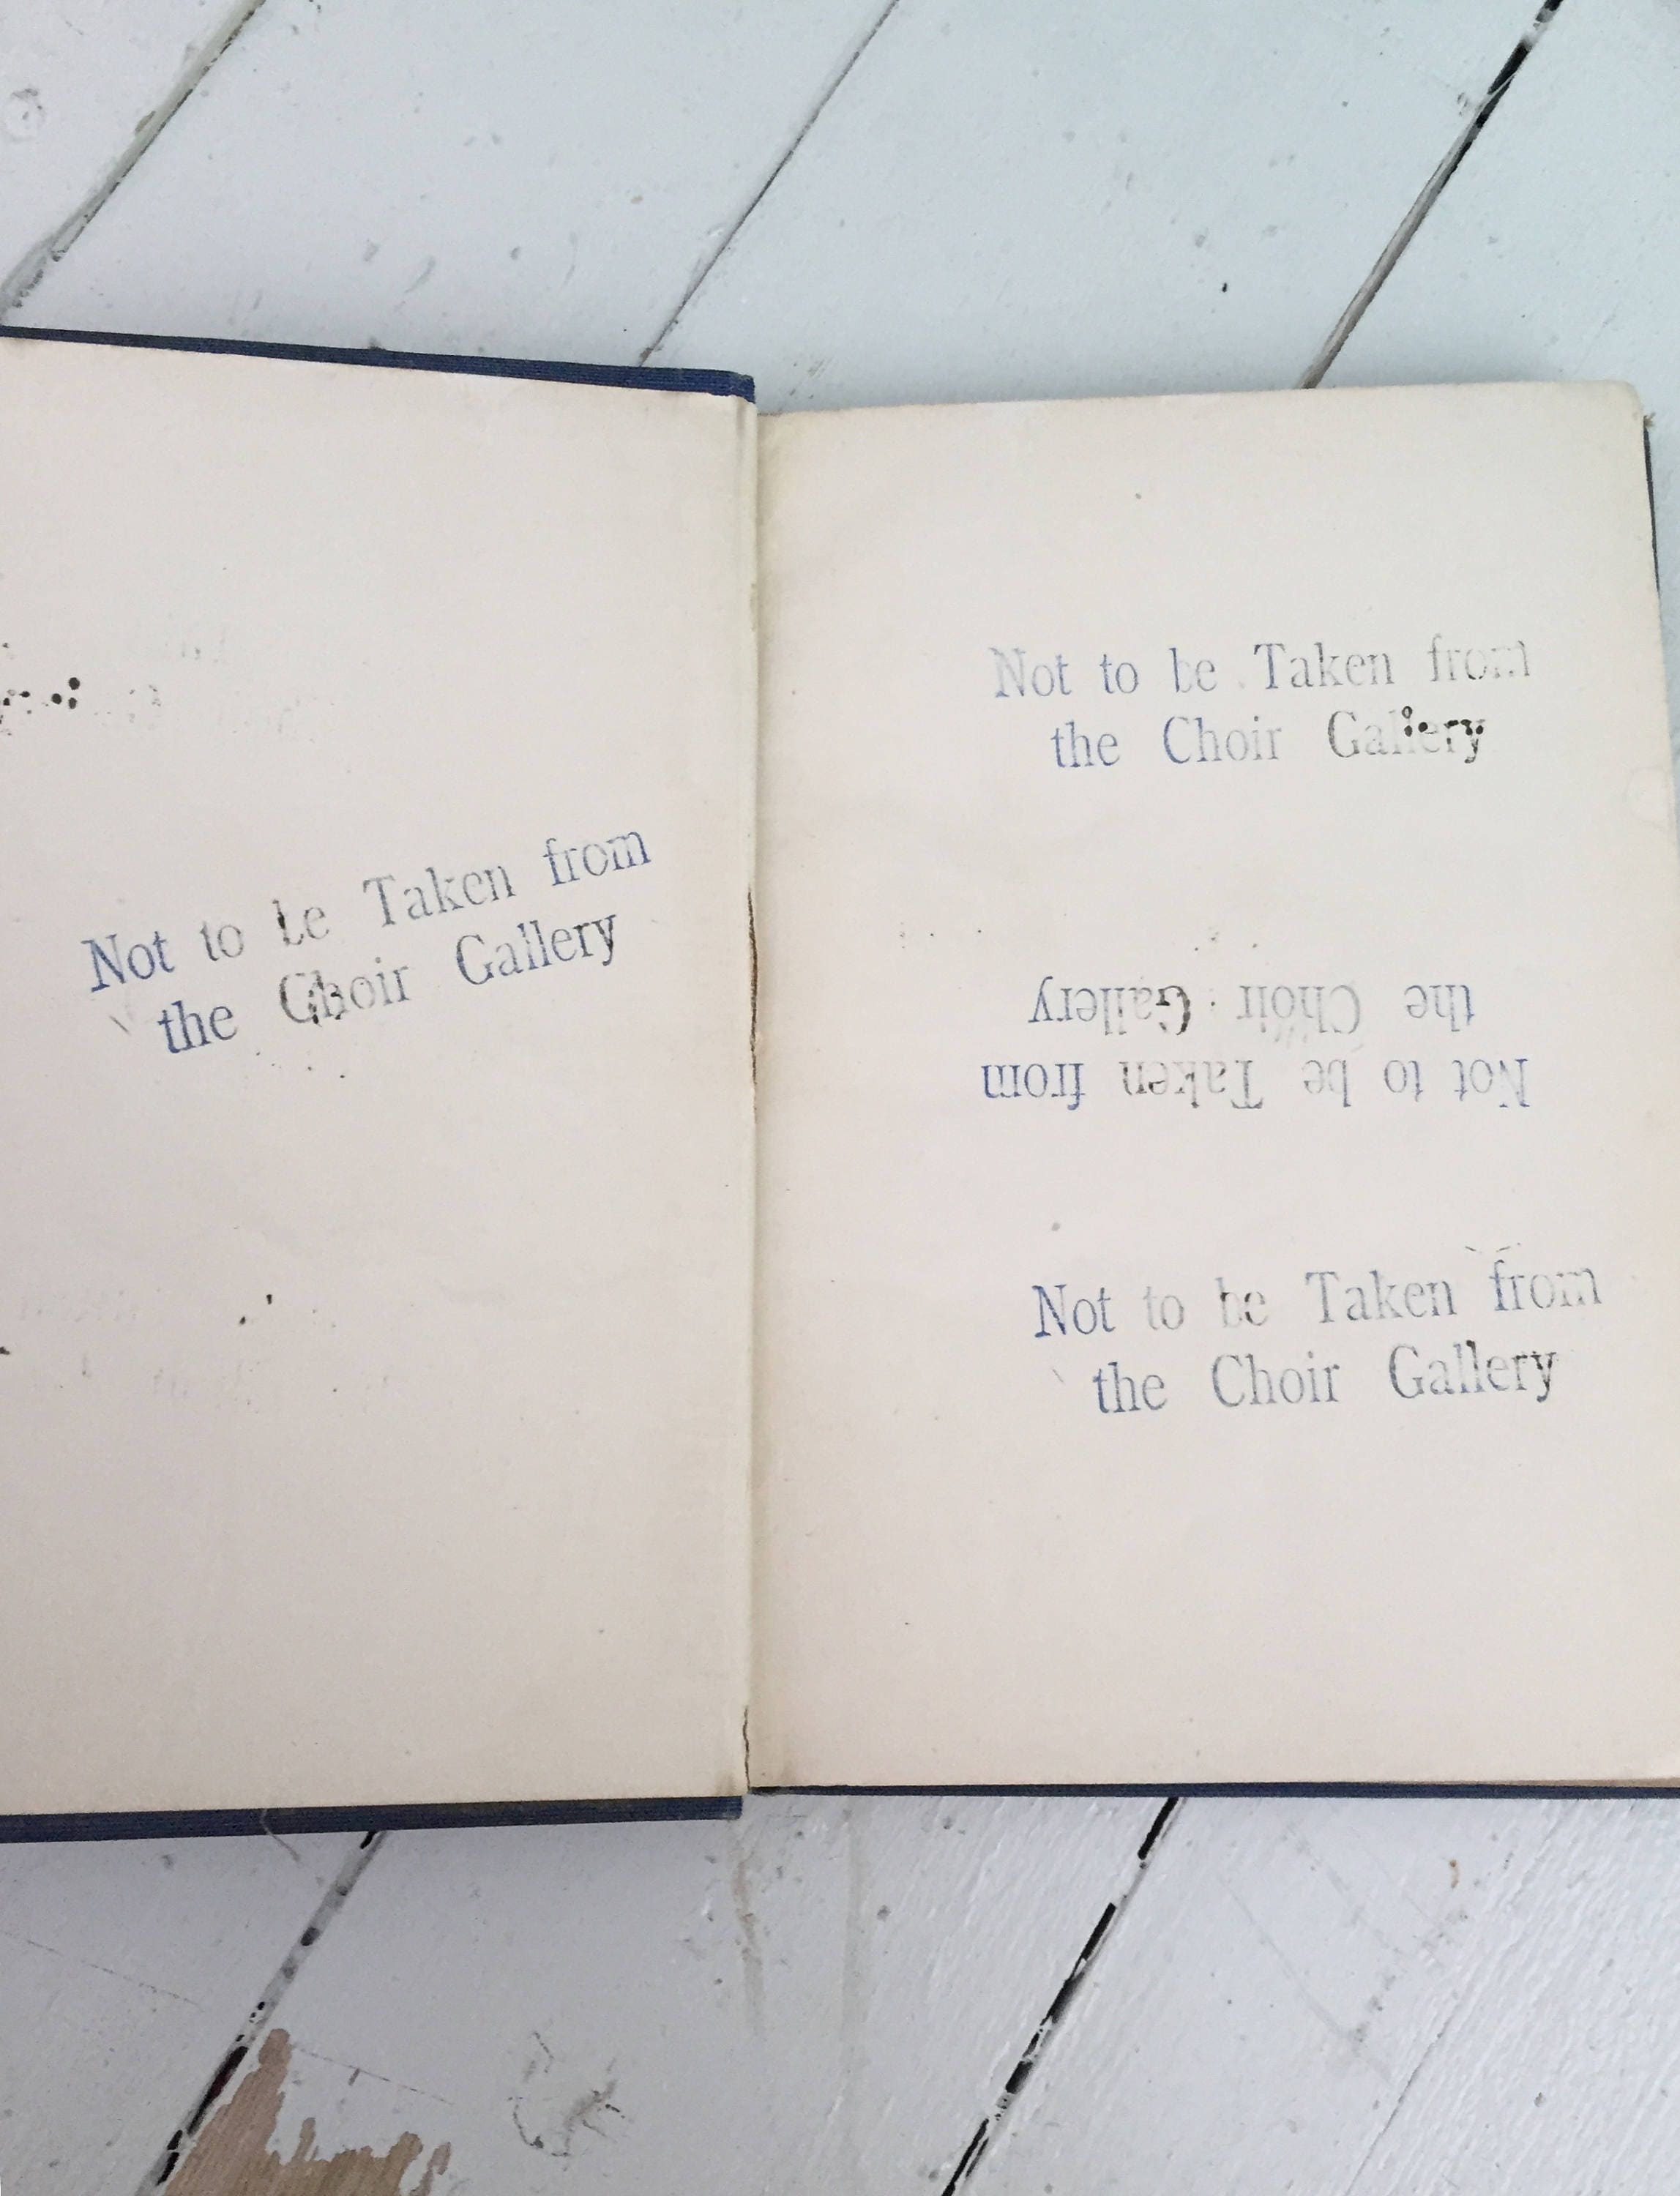 Not to be Taken from
the Choir Gallery
Not to be Taken from
the Choir Gallery
Not to be Taken from
the Choir Gallery
Not to be Taken from
the Choir Gallery